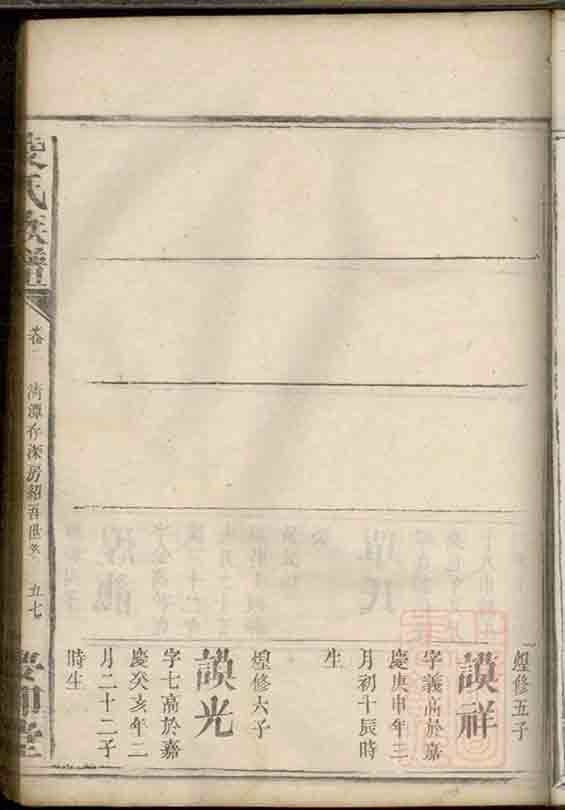 煌修五子
謨祥
字義高於嘉
慶庚申年三
月初十辰時
生
煌修六子
謨光
字七高於嘉
慶癸亥年二
月二十二子
時生
氏族譜
卷
清潭存深房紹吾世系
五七